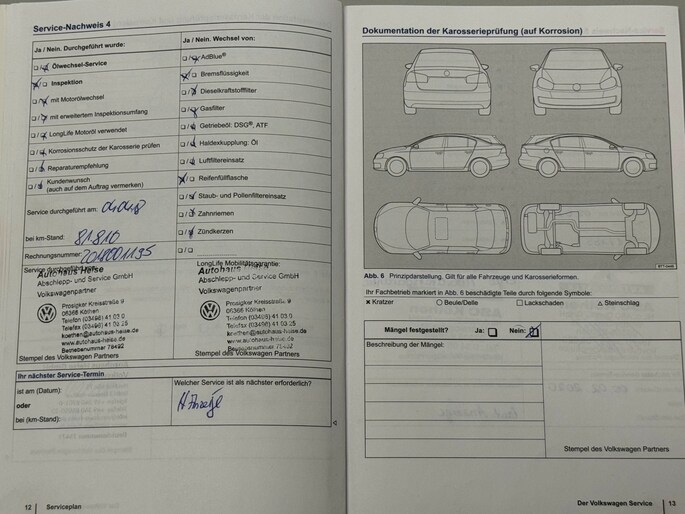 Service-Nachweis 4
Ja / Nein. Durchgeführt wurde:
Ölwechsel-Service
Inspektion
mit Motorölwechsel
mit erweitertem Inspektionsumfang
LongLife Motoröl verwendet
Korrosionsschutz der Karosserie prüfen
Reparaturempfehlung
Kundenwunsch
(auch auf dem Auftrag vermerken)
Service durchgeführt am:
bei km-Stand: 81.810
Rechnungsnummer: 2018001195
Service durchgeführt
Autohaus Heise
Abschlepp- und Service GmbH
Volkswagenpartner
Prosigker Kreisstraße 9
06366 Köthen
Telefon (03496) 41 03 0
Telefax (03496) 41 03 25
koethen@autohaus-heise.de
www.autohaus-heise.de
Betriebsnummer 78492
Stempel des Volkswagen Partners
Ja / Nein. Wechsel von:
AdBlue®
Bremsflüssigkeit
Dieselkraftstofffilter
Gasfilter
Getriebeöl: DSG®, ATF
Haldexkupplung: Öl
Luftfiltereinsatz
Reifenfüllflasche
Staub- und Pollenfiltereinsatz
Zahnriemen
Zündkerzen
LongLife Mobilitätsgarantie:
Autohaus
Abschlepp- und Service GmbH
Volkswagenpartner
Prosigker Kreisstraße 9
06366 Köthen
Telefon (03496) 41 03 0
Telefax (03496) 41 03 25
koethen@autohaus-heise.de
www.autohaus-heise.de
Betriebsnummer 78492
Stempel des Volkswagen Partners
Ihr nächster Service-Termin
ist am (Datum):
oder
bei (km-Stand):
Welcher Service ist als nächster erforderlich?
lt. Anzeige
12 Serviceplan
Dokumentation der Karosserieprüfung (auf Korrosion)
Abb. 6 Prinzipdarstellung. Gilt für alle Fahrzeuge und Karosserieformen.
Ihr Fachbetrieb markiert in Abb. 6 beschädigte Teile durch folgende Symbole:
Kratzer Beule/Delle Lackschaden Steinschlag
Mängel festgestellt? Ja: Nein:
Beschreibung der Mängel:
Stempel des Volkswagen Partners
Der Volkswagen Service 13